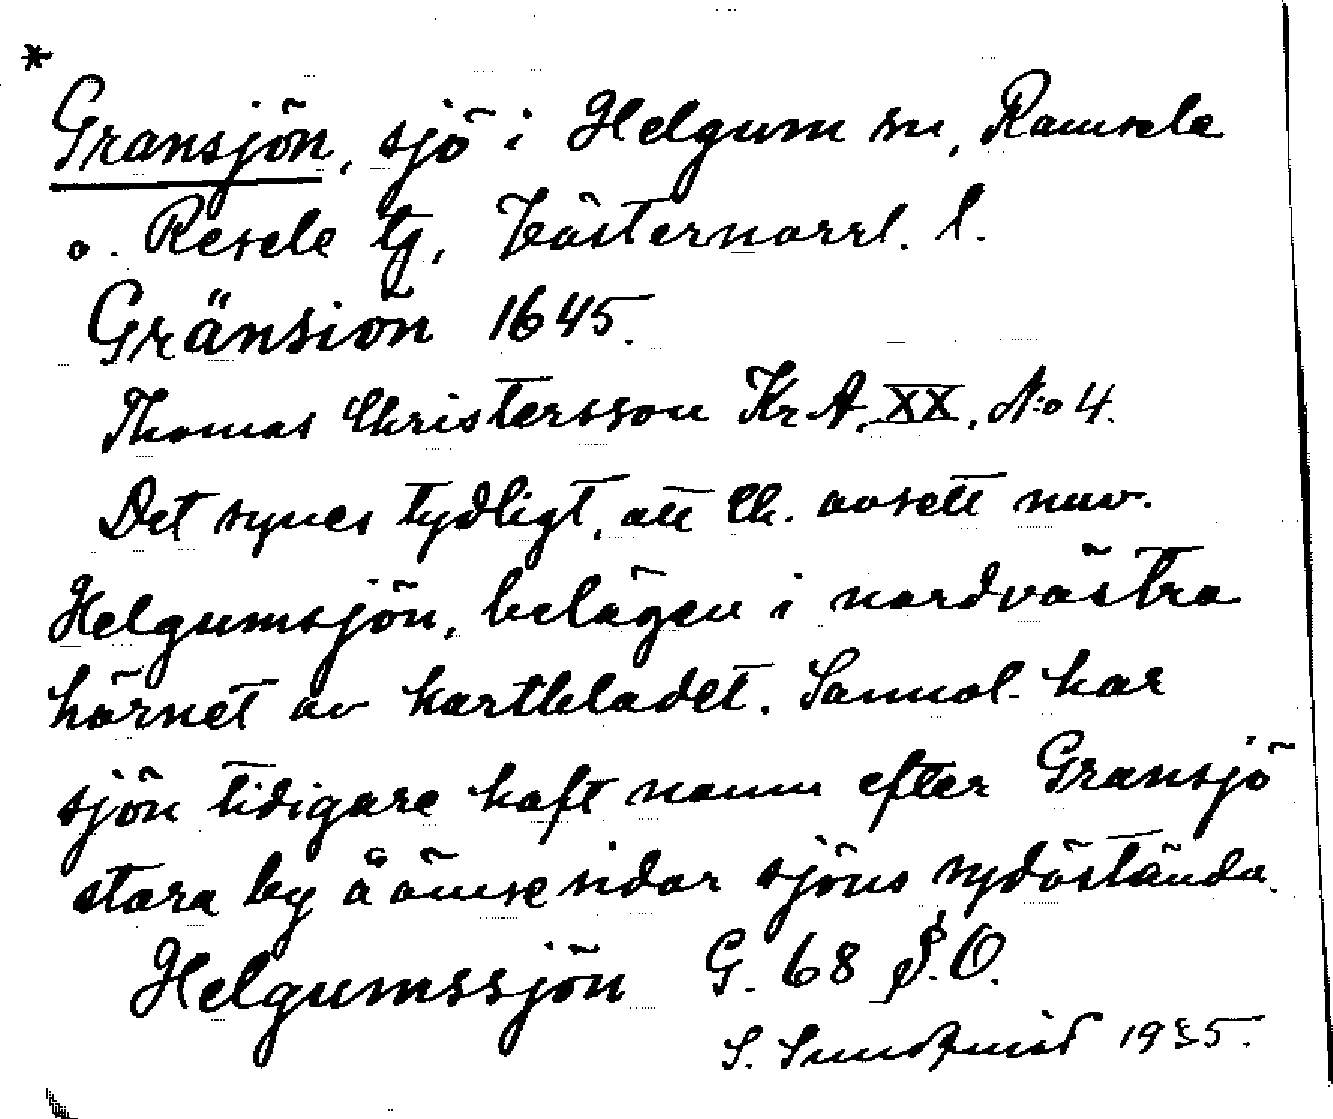 *
Gransjön, sjö i Helgum sn, Ramsele
o. Resele tg, Västernorrl. l.
Gränsiön 1645.
Thomas Christersson Kr A. XX, N:o 4.
Det synes tydligt, att Ch. avsett nuv.
Helgumsjön, belägen i nordvästra
hörnet av kartbladet. Sannol. har
sjön tidigare haft namn efter Gransjö
stora by å ömse sidor sjöns sydöstända.
Helgumssjön G. 68 S.O.
S. Sundqvist 1935.